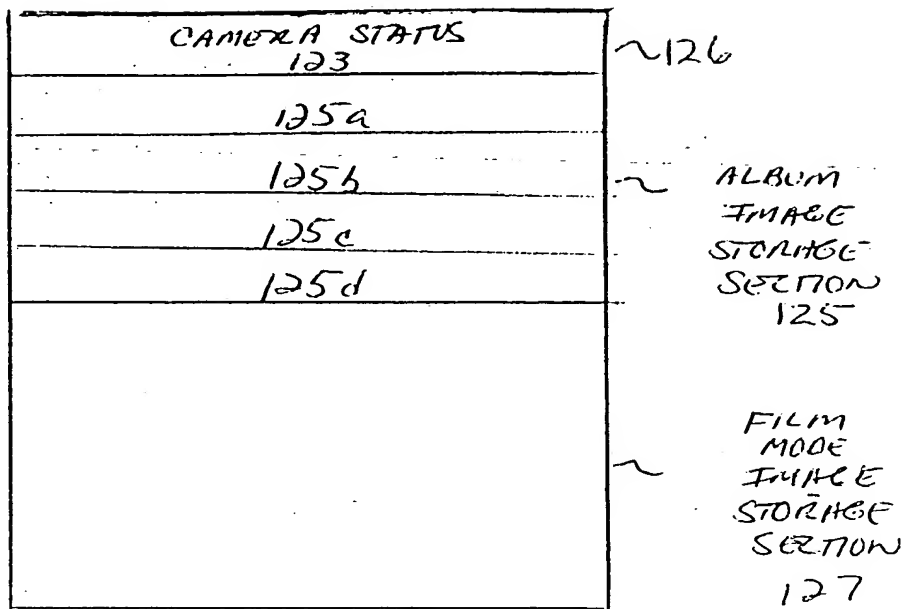 CAMERA STATUS
123
126
125a
125b
125c
125d
ALBUM
IMAGE
STORAGE
SECTION
125
FILM
MODE
IMAGE
STORAGE
SECTION
127